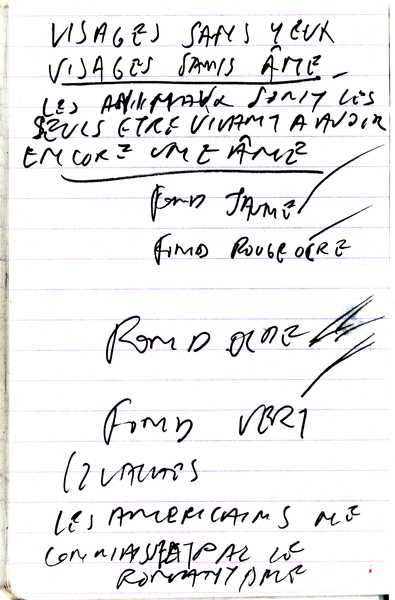 VISAGES SANS YEUX
VISAGES SANS ÂME
LES ANIMAUX SONT LES
SEULS ETRE VIVANT A AVOIR
ENCORE UNE ÂME
FOND JAUNE
FOND ROUGE OCRE
FOND OCRE
FOND VERT
LES AMERICAINS NE
CONNAISSENT PAS LE
ROMANTISME